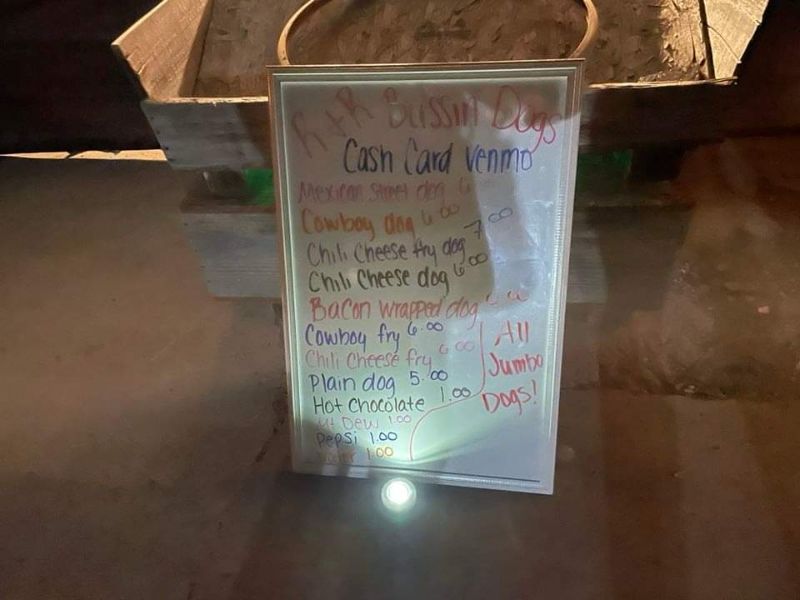 R + R Bussin Dogs
Cash Card Venmo
Mexican street dog 6
Cowboy dog 6.00
Chili Cheese fry dog 7.00
Chili Cheese dog 6.00
Bacon wrapped dog
Cowboy fry 6.00
Chili Cheese fry 6.00
Plain dog 5.00
Hot Chocolate 1.00
Mt Dew 1.00
Pepsi 1.00
Water 1.00
All
Jumbo
Dogs!